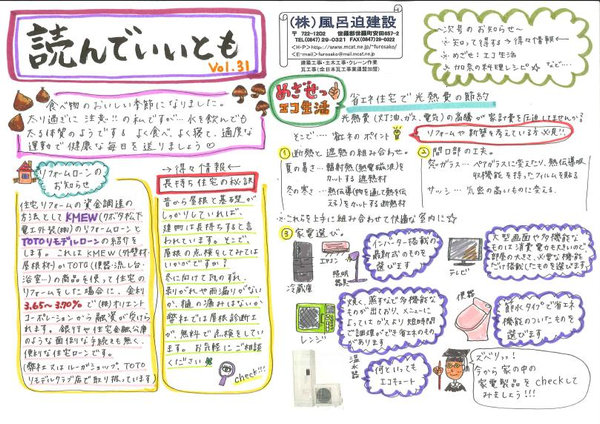 読んでいいとも
Vol.31
(株)風呂迫建設
〒722-1202 世羅郡世羅町安田657-2
TEL(0847)29-0321 FAX(0847)29-0022
<H・P>http://www.mcat.ne.jp/~furosako/
<E-mail>furosako@mail.mcat.ne.jp
建築工事・土木工事・クレーン作業
瓦工事(全日本瓦工事業連盟加盟)
~次号のお知らせ~
☆知って得する→得々情報←
☆めざせ!エコ生活
などー
食べ物のおいしい季節になりました。
太り過ぎに注意!!の私ですが…水を飲んでも
太る体質のようです よく食べ、よく寝て、適度な
運動で健康な毎日を送りましょう
リフォームローンの
お知らせ
住宅リフォームの資金調達の
方法としてKMEW(クボタ松下
電工外装(株))のリフォームローンと
TOTOリモデルローンの紹介を
します。これはKMEW(外壁材・
屋根材)かTOTO(便器・流し台・
浴室…)の商品を使って住宅の
リフォームをした場合に、金利
3.65~3.70%で(株)オリエント
コーポレーションから融資が受けら
れます。銀行や住宅金融公庫
のような面倒な手続きも無く、
便利な住宅ローンです。
(弊社ではルーガショップ、TOTO
リモデルクラブ店で取り扱っています)
→得々情報←
長持ち住宅の秘訣
昔から屋根と基礎が
しっかりしていれば、
建物は長持ちすると
言われています。そこで、
屋根の点検をしてみては
いかがですか?
冬に向けて瓦のずれ、
割れがれや雨漏りがない
か、樋の痛みはないか
弊社では屋根診断士
が、無料で点検をしてい
ます。お気軽にご相談
ください
check!!
めざせっ
エコ生活
省エネ住宅で光熱費の節約
光熱費(灯油、ガス、電気)の高騰が家計費を圧迫しませんか?
そこで… 省エネのポイント!
リフォームや新築を考えている方必見!!
① 断熱と遮熱の組み合わせ。
夏の暑さ…輻射熱(熱電磁波)を
カットする遮熱材
冬の寒さ…熱伝導(物を通して熱を伝
える)をカットする断熱材
② 開口部の工夫。
窓のガラス…ペアガラスに変えたり、熱伝導吸
収機能を持ったフィルムを貼る
サッシ…気密の高いものに変える。
これらを上手に組み合わせて快適な室内に☆
③ 家電選び。
冷蔵庫
エアコン
照明器具
インバーター搭載の
最新おのものを
選びます
テレビ
大型画面や多機能な
ものは消費電力も大きい!!
部屋の大きさ、必要な機能
だけ搭載したものを選びます。
レンジ
焼く、蒸すなど多機能な
ものが出ており、メニューに
よってはガスより短時間
で調理ができ省エネのもの
があります
便器
節水タイプで省エネ
機能のついたものを
選びます
温水器
何といっても
エコキュート
ズバリッ!
今から家の中の
家電製品をcheckして
みましょう!!!